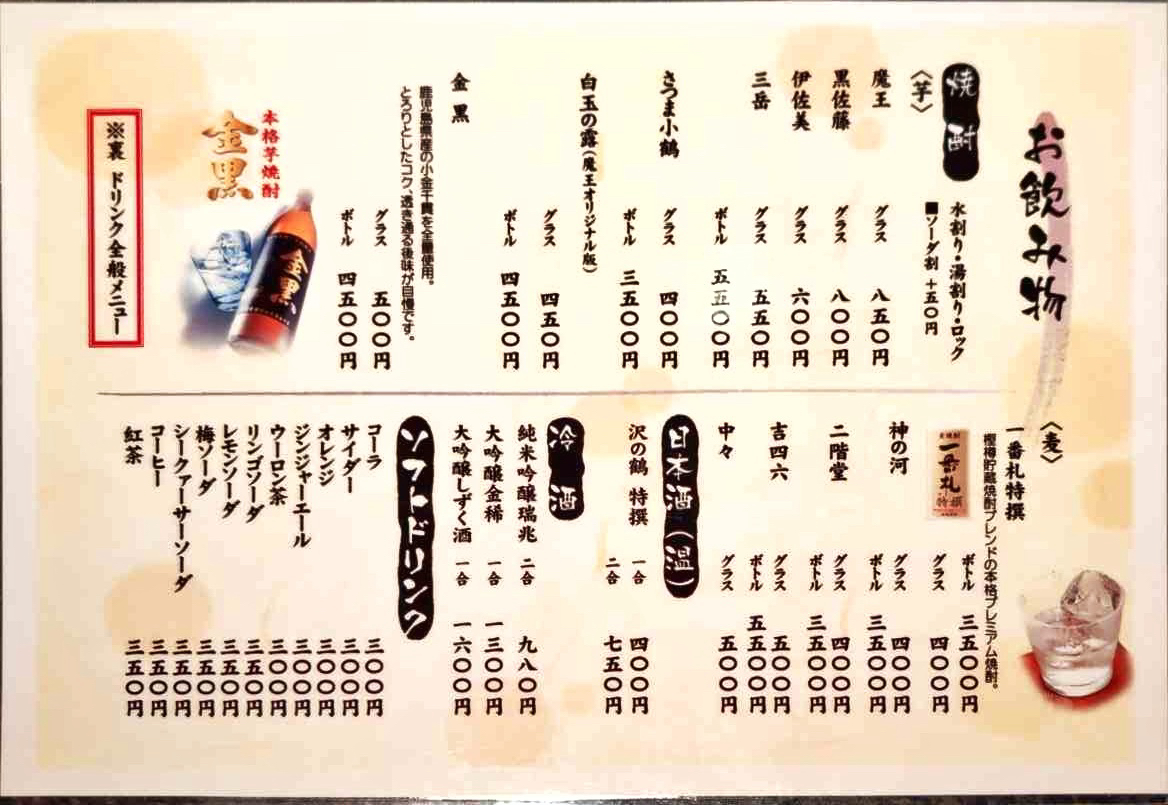 お飲み物
焼酎
水割り・湯割り・ロック
■ソーダ割 +五〇円
〈芋〉
魔王 グラス 八五〇円
黒佐藤 グラス 八〇〇円
伊佐美 グラス 六〇〇円
三岳 グラス 五五〇円
ボトル 五五〇〇円
さつま小鶴 グラス 四〇〇円
ボトル 三五〇〇円
白玉の露(魔王オリジナル版) グラス 四五〇円
ボトル 四五〇〇円
金黒
鹿児島県産の小金千貫を全量使用。
とろりとしたコク、透き通る後味が自慢です。
グラス 五〇〇円
ボトル 四五〇〇円
本格芋焼酎
金黒
金黒
※裏 ドリンク全般メニュー
〈麦〉
一番札特撰
樫樽貯蔵焼酎ブレンドの本格プレミアム焼酎。
ボトル 三五〇〇円
グラス 四〇〇円
一番札
特撰
神の河 グラス 四〇〇円
ボトル 三五〇〇円
二階堂 グラス 四〇〇円
ボトル 三五〇〇円
吉四六 グラス 五〇〇円
ボトル 五五〇〇円
中々 グラス 五〇〇円
日本酒(温)
沢の鶴 特撰 一合 四〇〇円
二合 七五〇円
冷酒
純米吟醸瑞兆 二合 九八〇円
大吟醸金稀 一合 一三〇〇円
大吟醸しずく酒 一合 一六〇〇円
ソフトドリンク
コーラ 三〇〇円
サイダー 三〇〇円
オレンジ 三〇〇円
ジンジャーエール 三〇〇円
ウーロン茶 三〇〇円
リンゴソーダ 三五〇円
レモンソーダ 三五〇円
梅ソーダ 三五〇円
シークァーサーソーダ 三五〇円
コーヒー 三五〇円
紅茶 三五〇円